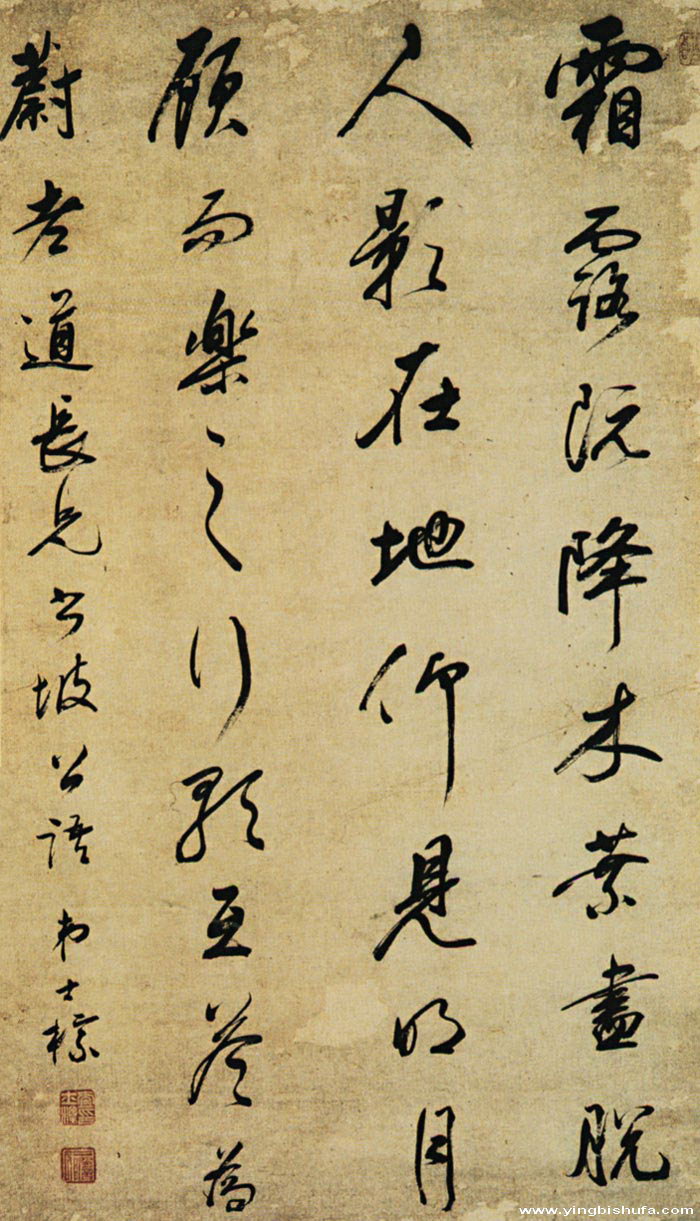 霜露既降木葉盡脫
人影在地仰見明月
顧而樂之行歌互荅為
蔚老道長兄書坡公語 弟士標
www.yingbishufa.com